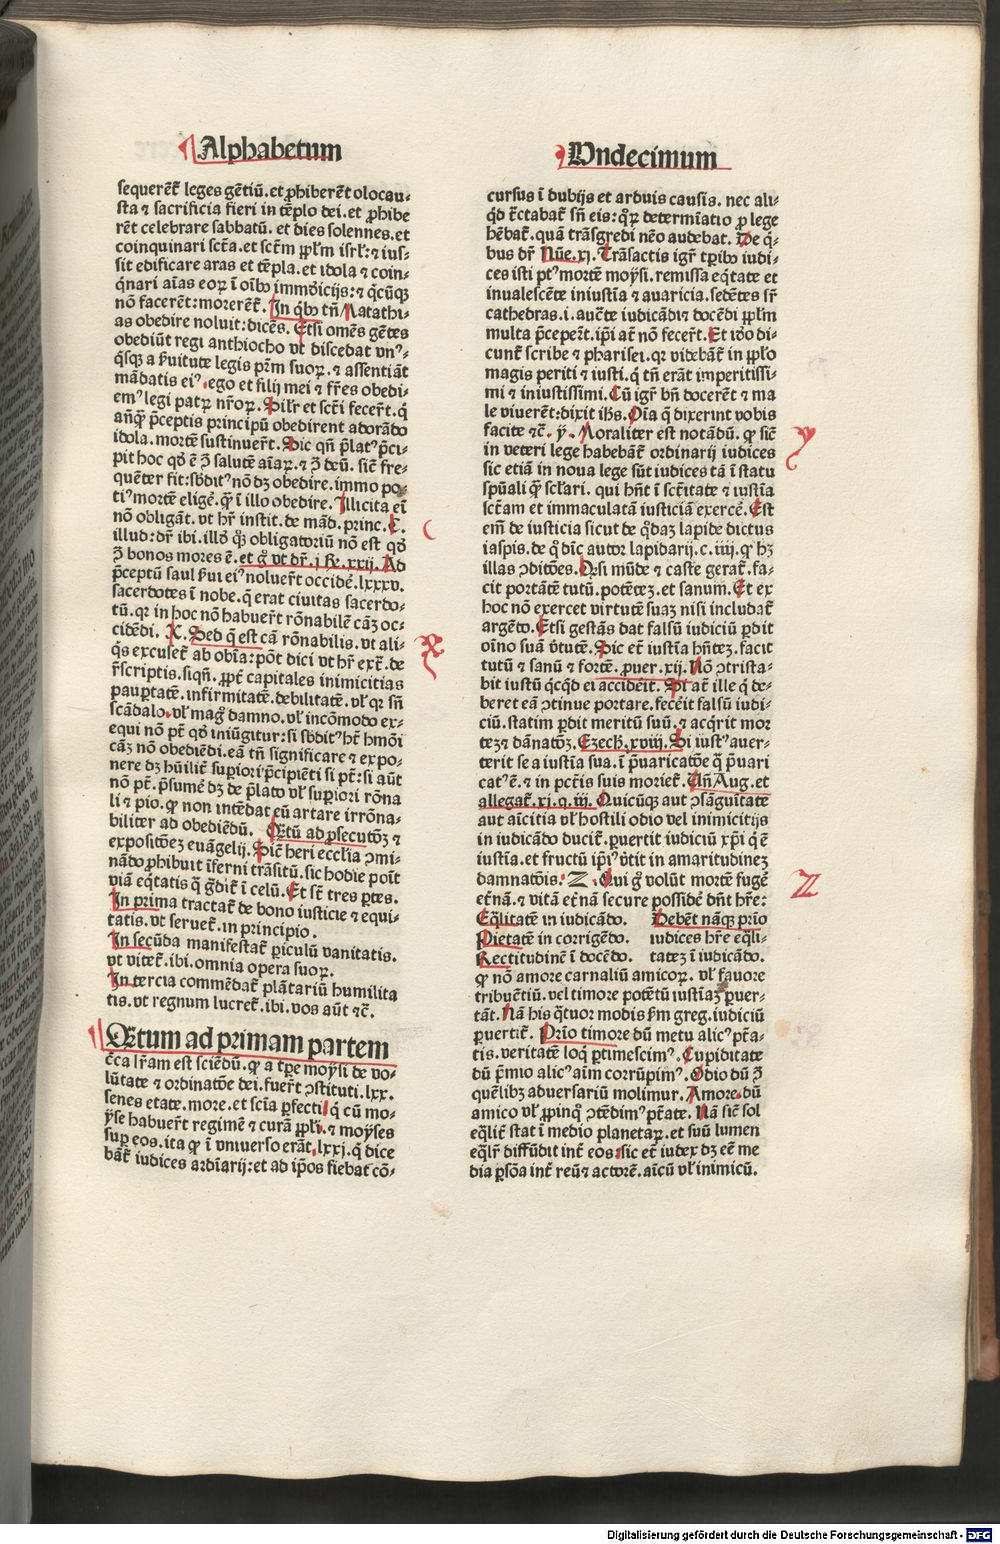 Alphabetum
sequerēt̄ leges gētiū.et ꝓhiberēt olocau-
sta ⁊ sacrificia fieri in tēplo dei.et ꝓhibe
rēt celebrare sabbatū. et dies solennes.et
coinquinari sctā.et sctm̄ pp̄lm isrl̄:⁊ ius-
sit edificare aras et tēpla.et idola ⁊ coin-
q̄nari aīas eoꝝ ī oībꝰ immūdicijs:⁊ q̄cūqꝫ
nō facerēt:morerēt̄. In q̄bꝰ tn̄ Matathi-
as obedire noluit:dicēs. Etsi omēs gētes
obediūt regi anthiocho vt discedat vnꝰ-
q̄sqꝫ a ẜuitute legis pr̄m suoꝝ.⁊ assentiāt
mādatis eiꝰ.ego et filij mei ⁊ fr̄es obedi-
emꝰ legi patꝝ nr̄oꝝ.Silr̄ et scti fecer̄t.q̄
anq̄ꝫ p̄ceptis principū obedirent adorādo
idola.mortē sustinuer̄t.Sic qn̄ p̄latꝰ p̄ci-
pit hoc qd̓ ē ꝯ̄ salutē aīaꝝ.⁊ ꝯ̄ deū. sic̄ fre-
quēter fit:sbditꝰ nō dꝫ obedire.immo po-
tiꝰ mortē eligē.qꝫ ī illo obedire.Illicita eī
nō obligāt.vt hr̄ instit.de mād.princ.C.
illud:dr̄ ibi.illd̓ qꝫ obligatoriū nō est qd̓
ꝯ̄ bonos mores ē.et gͦ vt dr̄.j Re.xxij.Ad
p̄ceptū saul ẜui eiꝰ noluer̄t occidē.lxxxv.
sacerdotes ī nobe.q̄ erat ciuitas sacerdo-
tū.qꝛ in hoc nō habuer̄t rōnabilē cāꝫ oc-
cidēdi. X.Sed q̄ est cā rōnabilis.vt ali-
q̄s excuset̄ ab obīa:pōt dici vt hr̄ ext̄.de
r̄scriptis.siqn̄.ꝓpt̄ capitales inimicitias
paupertatē.infirmitatē.debilitatē.vl̓ qꝛ sn̄
scādalo.vl̓ magͦ damno.vl̓ incōmodo ex-
equi nō pt̄ qd̓ iniūgitur:si sbditꝰ ht̄ hmōi
cāꝫ nō obediēdi.eā tn̄ significare ⁊ expo-
nere dꝫ hūilit̄ suꝑiori p̄cipiēti si pt̄:si aūt
nō pt̄.p̄sumē dꝫ de p̄lato vl̓ suꝑiori rōna
li ⁊ pio.qꝫ non intēdat eū artare irrōna-
biliter ad obediēdū. Qtū ad ꝓsecutōꝫ ⁊
expositōeꝫ euāgelij.Sic̄ heri eccl̄ia ꝯmi-
nādo ꝓhibuit īferni trāsitū.sic hodie poīt
viā eq̄tatis q̄ ḡdit̄ ī celū.Et st̄ tres ꝑtes.
In prima tractat̄ de bono iusticie ⁊ equi-
tatis.vt seruet̄.in principio.
In secūda manifestat̄ piculū vanitatis.
vt vitet̄.ibi.omnia opera suoꝝ.
In tercia commēdat̄ plātariū humilita
tis.vt regnum lucret̄.ibi.vos aūt ⁊c̄.
Qtum ad primam partem
c̄ca lr̄am est sciēdū.qꝫ a tp̄re moysi de vo-
lūtate ⁊ ordinatōe dei.fuer̄t ꝯstituti.lxx.
senes etate.more.et scīa ꝑfecti.q̄ cū mo-
yse habuer̄t regimē ⁊ curā pp̄li.⁊ moyses
suꝑ eos.ita qꝫ ī vniuerso erāt.lxxj.q̄ dice
bāt̄ iudices ardīarij:et ad ip̄os fiebat cō-
Undecimum
cursus ī dubijs et arduis causis. nec ali-
q̄d t̄ctabat̄ sn̄ eis:qꝛ determīatio ꝓ lege
hēbat̄.quā trāsgredi nēo audebat. De q̄-
bus dr̄ Nūe.xj.Trāsactis igr̄ tp̄ribꝰ iudi-
ces isti ptꝰ mortē moysi.remissa eq̄tate et
inualescēte iniustīa ⁊ auaricia.sedētes sr̄
cathedras.i.aucte iudicādi⁊ docēdi pp̄lm
multa p̄cepert̄.ip̄i at̄ nō fecer̄t.Et iđo di-
cunt̄ scribe ⁊ pharisei.qꝛ videbāt̄ in pp̄lo
magis periti ⁊ iusti.q̄ tn̄ erāt imperitissi-
mi ⁊ iniustissimi.Cū igr̄ bn̄ docerēt ⁊ ma
le viverēt:dixit ih̄s.Oīa q̄ dixerint vobis
facite ⁊c̄. y. Moraliter est notādū.qꝫ sic̄
in veteri lege habebāt̄ ordinarij iudices
sic etiā in noua lege sūt iudices tā ī statu
spūali qꝫ sclari. qui hn̄t ī sctitate ⁊ iustīa
sctam et immaculatā iusticiā exercē.Est
em̄ de iusticia sicut de q̄daꝫ lapide dictus
iaspis.de q̄ dic̄ autor lapidarij.c.iiij.qꝫ hꝫ
illas ꝯditōes.Qꝫsi mūde ⁊ caste gerat̄.fa-
cit portātē tutū.potētez.et sanum.Et ex
hoc nō exercet virtutē suaꝫ nisi includat̄
argēto.Etsi gestās dat falsū iudiciū ꝑdit
oīno suā v̓tutē.Sic et̄ iustīa hn̄teꝫ.facit
tutū ⁊ sanū ⁊ fortē.ꝓuer.xij.Nō ꝯtrista-
bit iustū qͥcqͥd ei acciderit.Si at̄ ille q̄ de-
beret eā ꝯtinue portare.fecerit falsū iudi-
ciū.statim ꝑdit meritū suū.⁊ acq̄rit mor
teꝫ⁊ dānatōꝫ.Ezech̓.xviij.Si iustꝰ auer-
terit se a iustīa sua.ī p̄uaricatōe q̄ p̄uari
catꝰ ē.⁊ in pctis suis moriet̄.Un̄ Aug.et
allegat̄.xj.q.iij.Quicūqꝫ aut ꝯsāguītate
aut aīcitia vl̓ hostili odio vel inimicitijs
in iudicādo ducit̄.ꝑuertit iudiciū xp̄i q̄ ē
iustīa.et fructū ip̄iꝰ v̓tit in amaritudineꝫ
damnatōis. Z .Qui gͦ volūt mortē fugē
et̄nā.⁊ vitā et̄nā secure possidē dn̄t hr̄e:
Eq̄litatē in iudicādo. Debēt nāqꝫ prio
Pietatē in corrigēdo. iudices hr̄e eq̄li-
Rectitudinē ī docēdo. tateꝫ ī iudicādo.
qꝫ nō amore carnaliū amicoꝝ. vl̓ fauore
tribuētiū.vel timore potētū iustīaꝫ ꝑuer-
tāt.Nā his q̄tuor modis ẜm greg.iudiciū
ꝑuertit̄. Prīo timore dū metu alicꝰ pt̄a-
tis.veritatē loq̄ ꝑtimescimꝰ.Cupiditate
dū p̄mio alicꝰ aīm corrūpimꝰ.Odio dū ꝯ̄
quēlibꝫ adversariū molimur. Amore.dū
amico vl̓ ꝓpinq̄ ꝯtēdimꝰ pt̄ate. Nā sic̄ sol
eq̄lit̄ stat ī medio planetaꝝ.et suū lumen
eq̄lr̄ diffūdit int̄ eos:sic et̄ iudex dꝫ eē me
dia ꝑsōa int̄ reū⁊ actorē.aīcū vl̓ inimicū.
C
X
y
Z
Digitalisierung gefördert durch die Deutsche Forschungsgemeinschaft - DFG